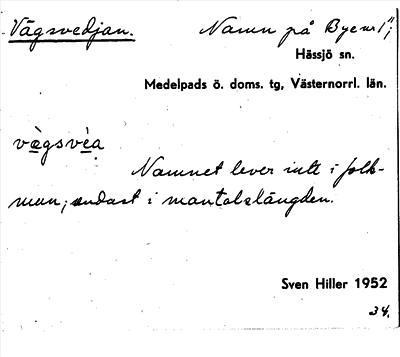 Vägsvedjan. Namn på Byemr 1";
Hässjö sn.
Medelpads ö. doms. tg, Västernorrl. län.
vägsvèa
Namnet lever inte i folk-
mun; endast i mantalslängden.
Sven Hiller 1952
34.